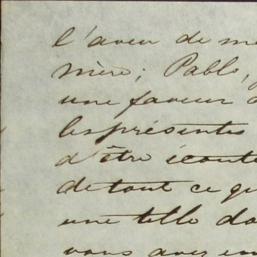 l'aveu de
mère; Pablo,
une faveur
les présentes
d'être écouté
de tout ce
une telle
vous avez